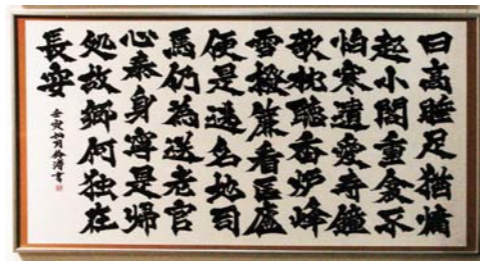 日高睡足猶慵
起小閣重衾不
怕寒遺愛寺鐘
欹枕聴香炉峰
雪撥簾看匡廬
便是逃名地司
馬仍為送老官
心泰身寧是帰
処故郷何独在
長安
壬寅月書